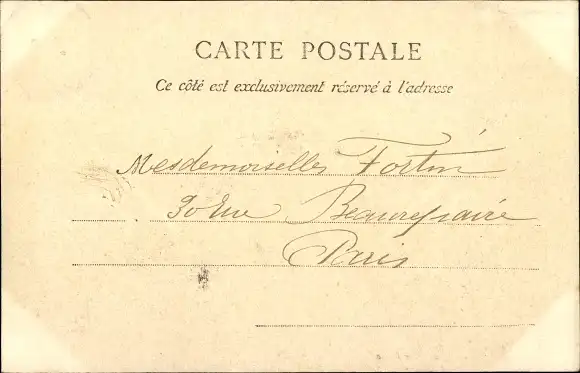 CARTE POSTALE
Ce côté est exclusivement réservé à l'adresse
Mesdemoiselles Fortin
30 Rue Beaurepaire
Paris